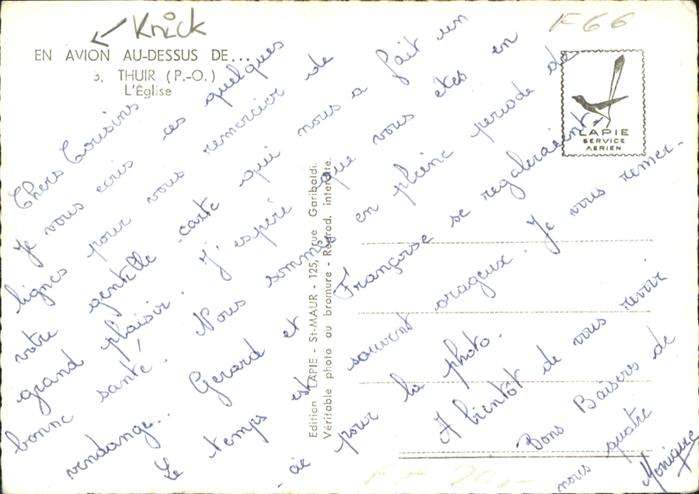 Knick
F66
EN AVION AU-DESSUS DE...
3, THUIR (P.-O.)
L'Église
LAPIE
SERVICE
AÉRIEN
Edition LAPIE - St-MAUR - 125, rue Garibaldi
Véritable photo au bromure - Reprod. interdite.
Chers Cousins
Je vous écris ces quelques
lignes pour vous remercier de
votre gentille carte qui nous a fait un
grand plaisir. J'espère que vous êtes en
bonne santé. Nous sommes en pleine période de
vendange... Gerard et Françoise se régaleraient.
Le temps est souvent orageux. Je vous remer-
cie pour la photo.
A bientôt de vous revoir
Bons Baisers de
nous quatre
Monique